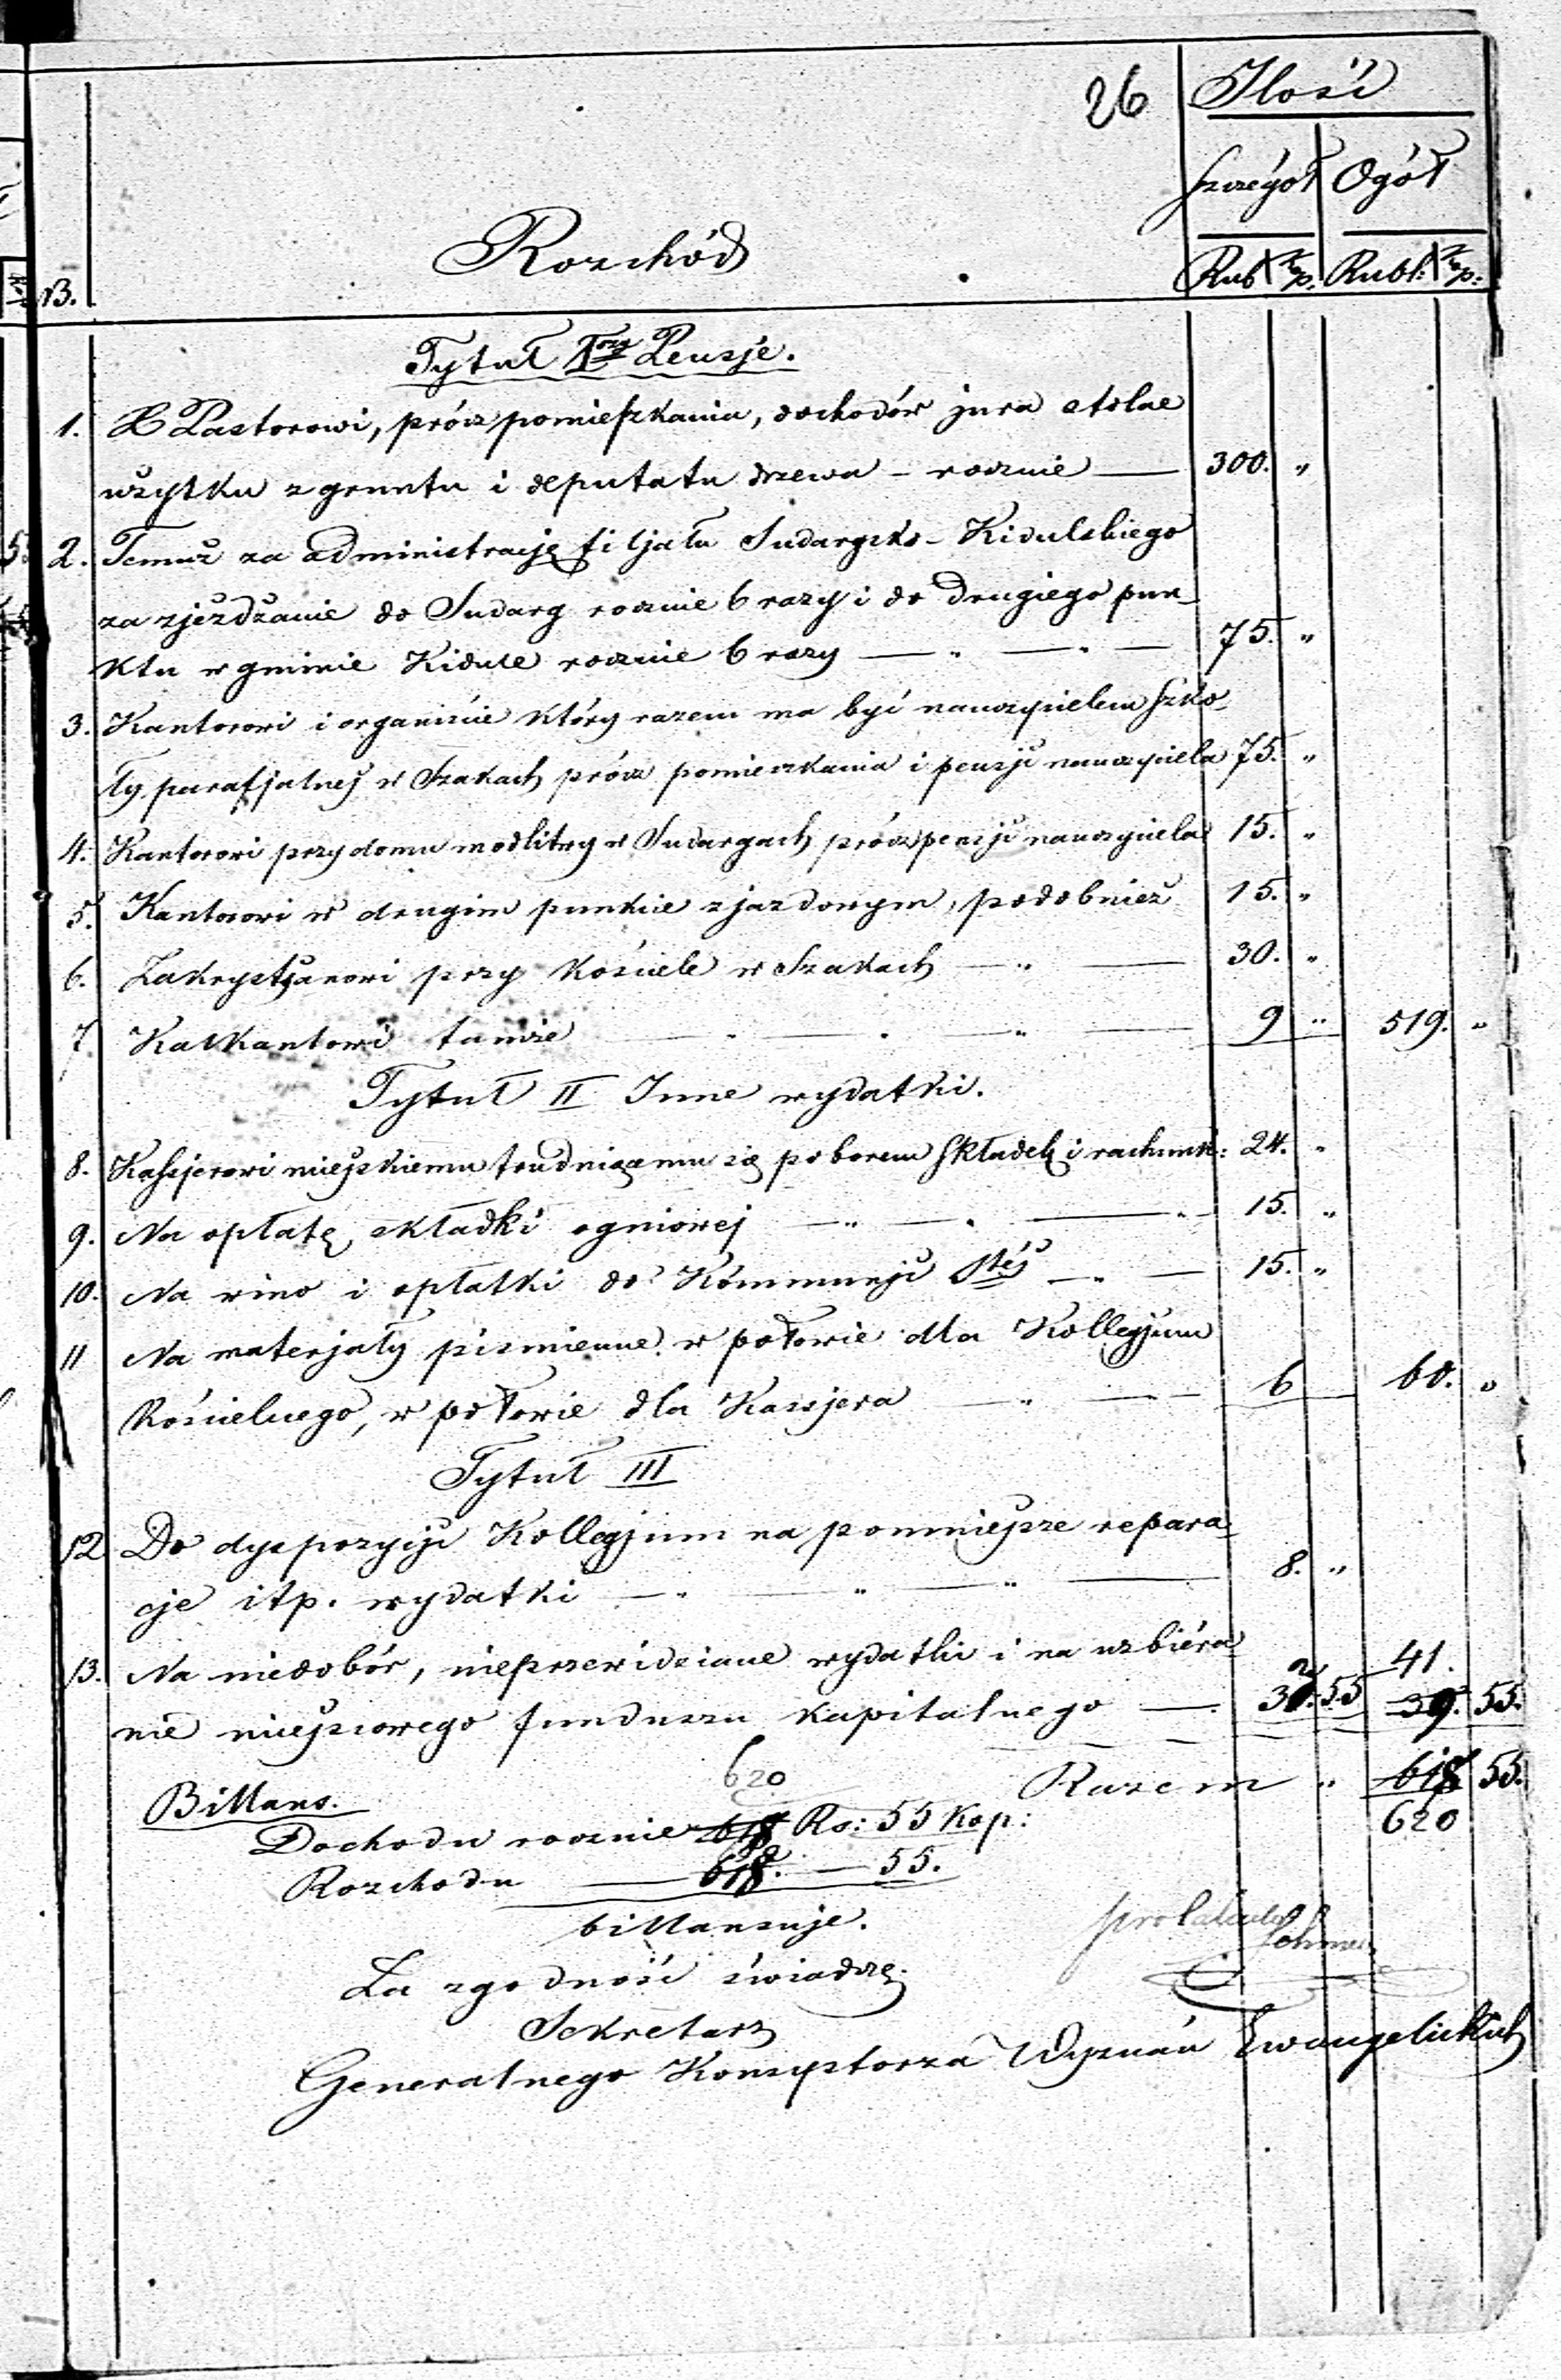 26
Ilość
Szczegół Ogół
Rozchód
Rub Kop. Rubl: Kop:
Tytuł Iszy Pensje.
1. X Pastorowi, prócz pomieszkania, dochodów jura stolae
użytku z gruntu i deputatu drzewa – rocznie — 300. „
2. Temuż za administrację filjału Sudargsko-Kidulskiego
za zjeżdżanie do Sudarg rocznie 6 razy i do drugiego pun-
ktu w gminie Kidule rocznie 6 razy — „ — „ — 75. „
3. Kantorowi i organiście który razem ma być nauczycielem szko-
ły parafjalnej w Szakach prócz pomieszkania i pensji nauczyciela 75. „
4. Kantorowi przy domu modlitwy w Sudargach prócz pensji nauczyciela 15. „
5. Kantorowi w drugim punkcie zjazdowym, podobnież 15. „
6. Zakrystjanowi przy kościele w Szakach — „ — 30. „
7 Kalkantowi tamże — „ — „ — 9 „ 519. „
Tytuł II Inne wydatki.
8. Kassjerowi miejskiemu trudniącemu się poborem składek i rachunk: 24. „
9. Na opłatę składki ogniowej — „ — „ — 15. „
10. Na wino i opłatki do Kommunji Stéj — „ — 15. „
11 Na materjały piśmienne w połowie dla Kollegjum
Kościelnego, w połowie dla Kassjera — „ — 6 60. „
Tytuł III
12 Do dyspozycji Kollegjum na pomniejsze repara-
cje itp. wydatki — „ — „ — „ — 8. „
13. Na niedobór, nieprzewidziane wydatki i na uzbiéra-
2 41.
nie miejscowego funduszu kapitalnego — 31. 55 39. 55.
620 Razem „ 618 55.
Billans.
620
Dochodu rocznie 618 Rs: 55 Kop:
Rozchodu — 618. — 55.
billansuje.
Za zgodność świadczę.
Sekretarz
Generalnego Konsystorza Wyznań Ewangelickich